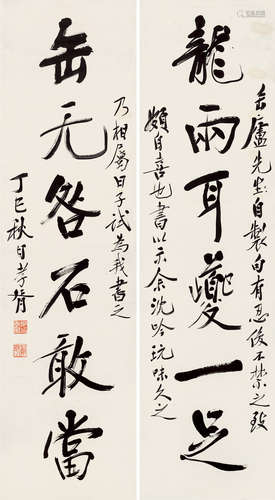 龍兩耳夔一足
缶廬先生自製句有忍俊不禁之致
頗自喜也書以示余沈吟玩味久之
缶无咎石敢當
乃相屬曰子試為我書之
丁巳秋日孝胥